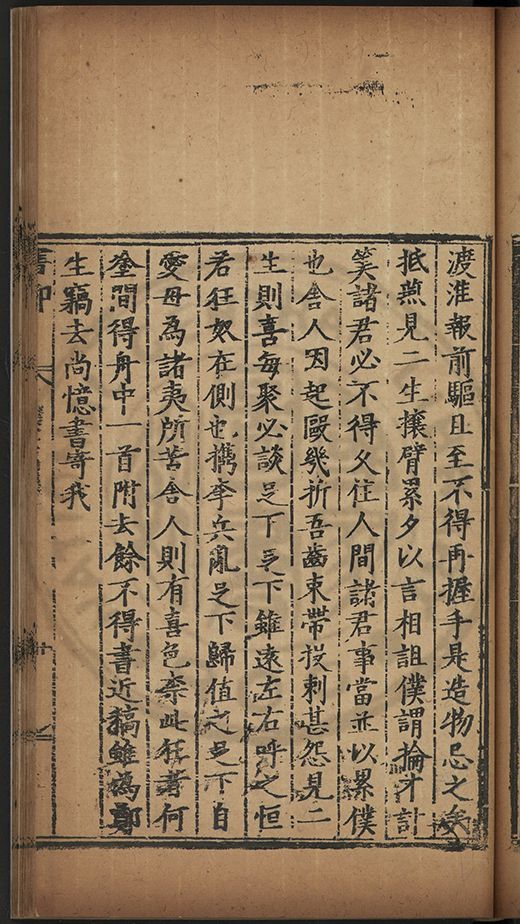 渡淮報前驅且至不得再握手是造物忌之矣
抵燕見二生攘臂累夕以言相詛僕謂掄才計
笑諸君必不得久往人間諸君事當並以累僕
也舍人因起毆幾折吾齒束帶投刺甚怨見二
生則喜每聚必談足下足下雖遠左右呼之恒
若狂奴在側也攜李兵亂足下歸值之足下自
愛毋為諸夷所苦舍人則有喜色柰此狂者何
奎間得舟中一首附去餘不得書近稿雖為鄭
生竊去尚憶書寄我